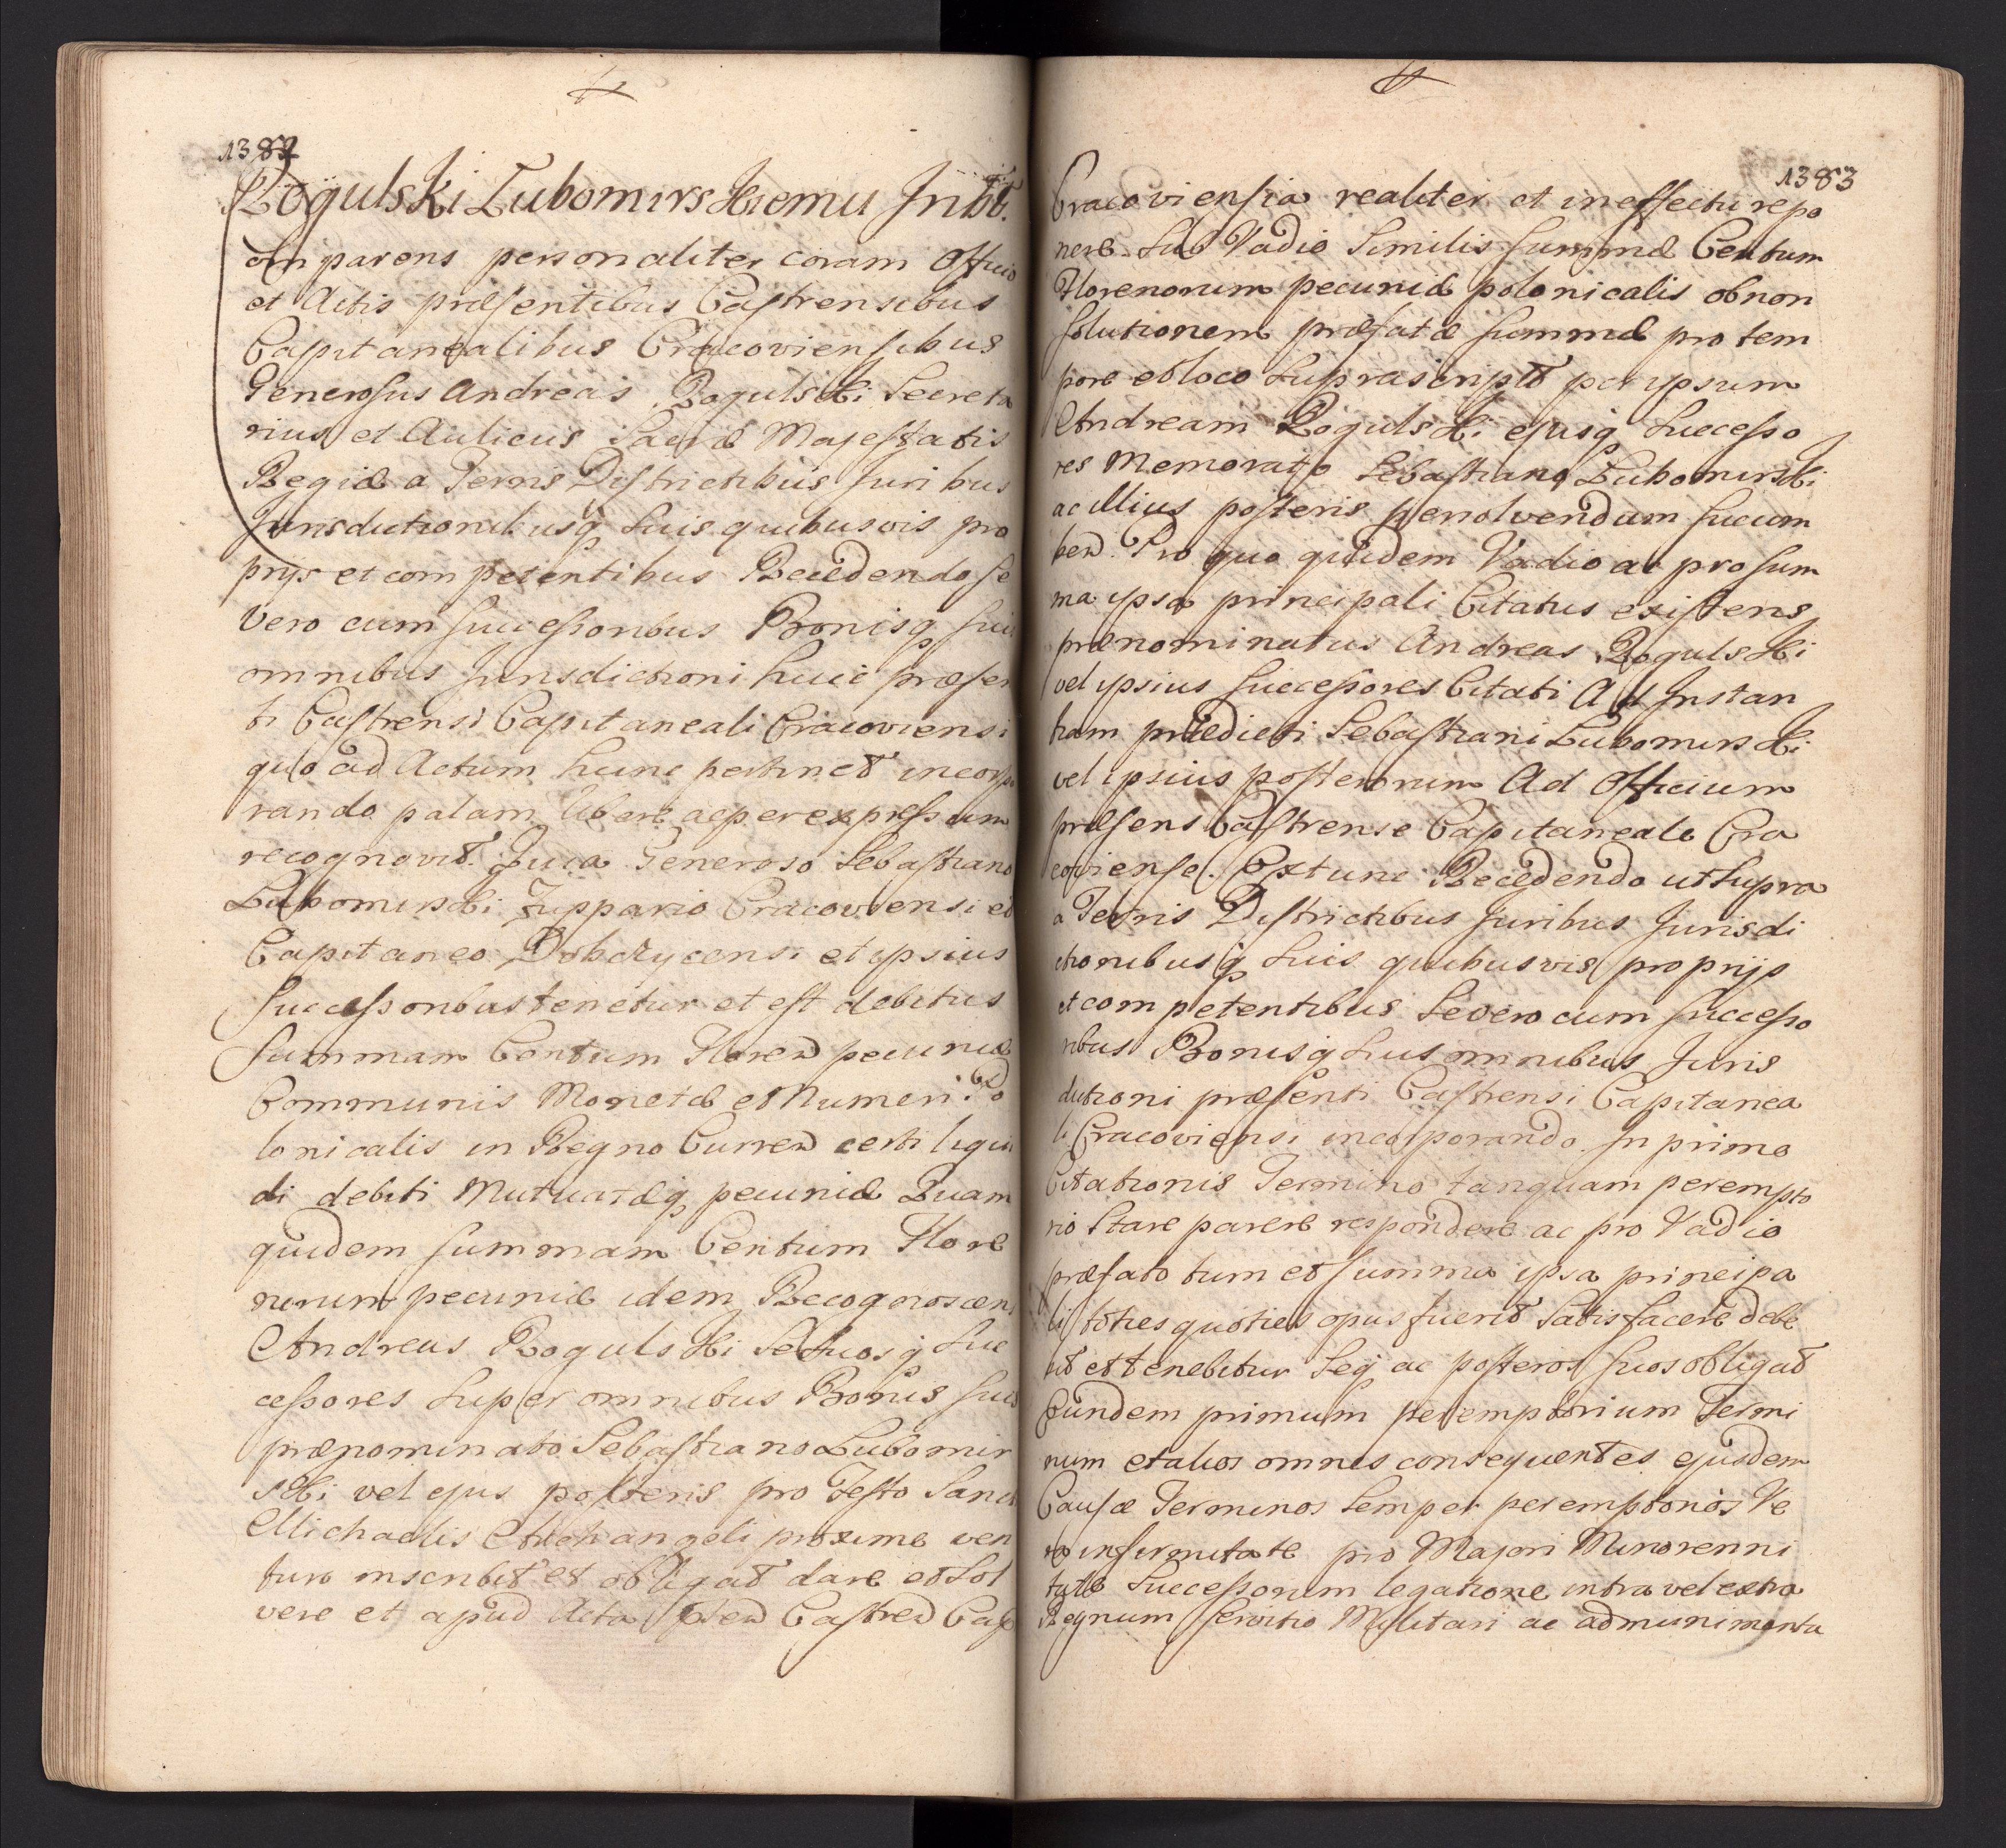 1382
Rogulski Lubomirskiemu Inbt.
Comparens personaliter coram Officio
et Actis præsentibus Castrensibus
Capitanealibus Cracoviensibus
Generosus Andreas Rogulski Secreta
rius et Aulicus Sacræ Majestatis
Regiæ a Terris Districtibus Juribus
Jurisdictionibusq suis quibusvis pro
prijs et competentibus Recedendo se
vero cum successoribus Bonisq suis
omnibus Jurisdictioni huic præsen
ti Castrensi Capitaneali Cracoviensi
quo ad Actum hunc pertinet incorpo
rando palam libere ac per expressum
recognovit. Quia Generoso Sebastiano
Lubomirski Zuppario Cracoviensi et
Capitaneo Dobczycensi et ipsius
successoribus tenetur et est debitus
summam Centum Floren pecuniæ
Communis Monetæ et Numeri Po
lonicalis in Regno Curren certi liqui
di debiti Mutuatæq pecuniæ Quam
quidem summam Centum Flore
norum pecuniæ idem Recognoscens
Andreas Rogulski se suosq suc
cessores super omnibus Bonis suis
prænominato Sebastiano Lubomir
ski vel ejus posteris pro Festo Sancti
Michaelis Archangeli proxime ven
turo inscribit et obligat dare et sol
vere et apud Acta Castren Cap
1383
Cracoviensia realiter et in effectu repo
nere. Sub Vadio Similis summæ Centum
Florenorum pecuniæ polonicalis ob non
solutionem præfatæ summæ pro tem
pore et loco suprascript per ipsum
Andream Rogulski ejusq successo
res Memorato Sebastiano Lubomirski
ac illius posteris persolvendum succum
ben. Pro quo quidem Vadio ac pro sum
ma ipsa principali Citatus existens
prænominatus Andreas Rogulski
vel ipsius successores Citati Ad Instan
tiam prædicti Sebastiani Lubomirski
vel ipsius posterorum Ad Officium
præsens Castrense Capitaneale Cra
coviense. Extunc Recedendo ut supra
a Terris Districtibus Juribus Jurisdi
ctionibusq suis quibusvis proprijs
et competentibus se vero cum successo
ribus Bonisq suis omnibus Juris
dictioni præsenti Castrensi Capitanea
li Cracoviensi incorporando. In primo
Citationis Termino tanquam perempto
rio Stare parere respondere ac pro Vadio
præfato tum et summa ipsa principa
li toties quoties opus fuerit Satisfacere debe
bit et tenebitur Seq ac posteros suos obligat
Eundem primum peremptorium Termi
num et alios omnes consequentes ejusdem
Causæ Terminos semper peremptorios Ve
ra infirmitate pro Majori Minorenni
tate Successorum legatione intra vel extra
Regnum servitio Militari ac admunimenta